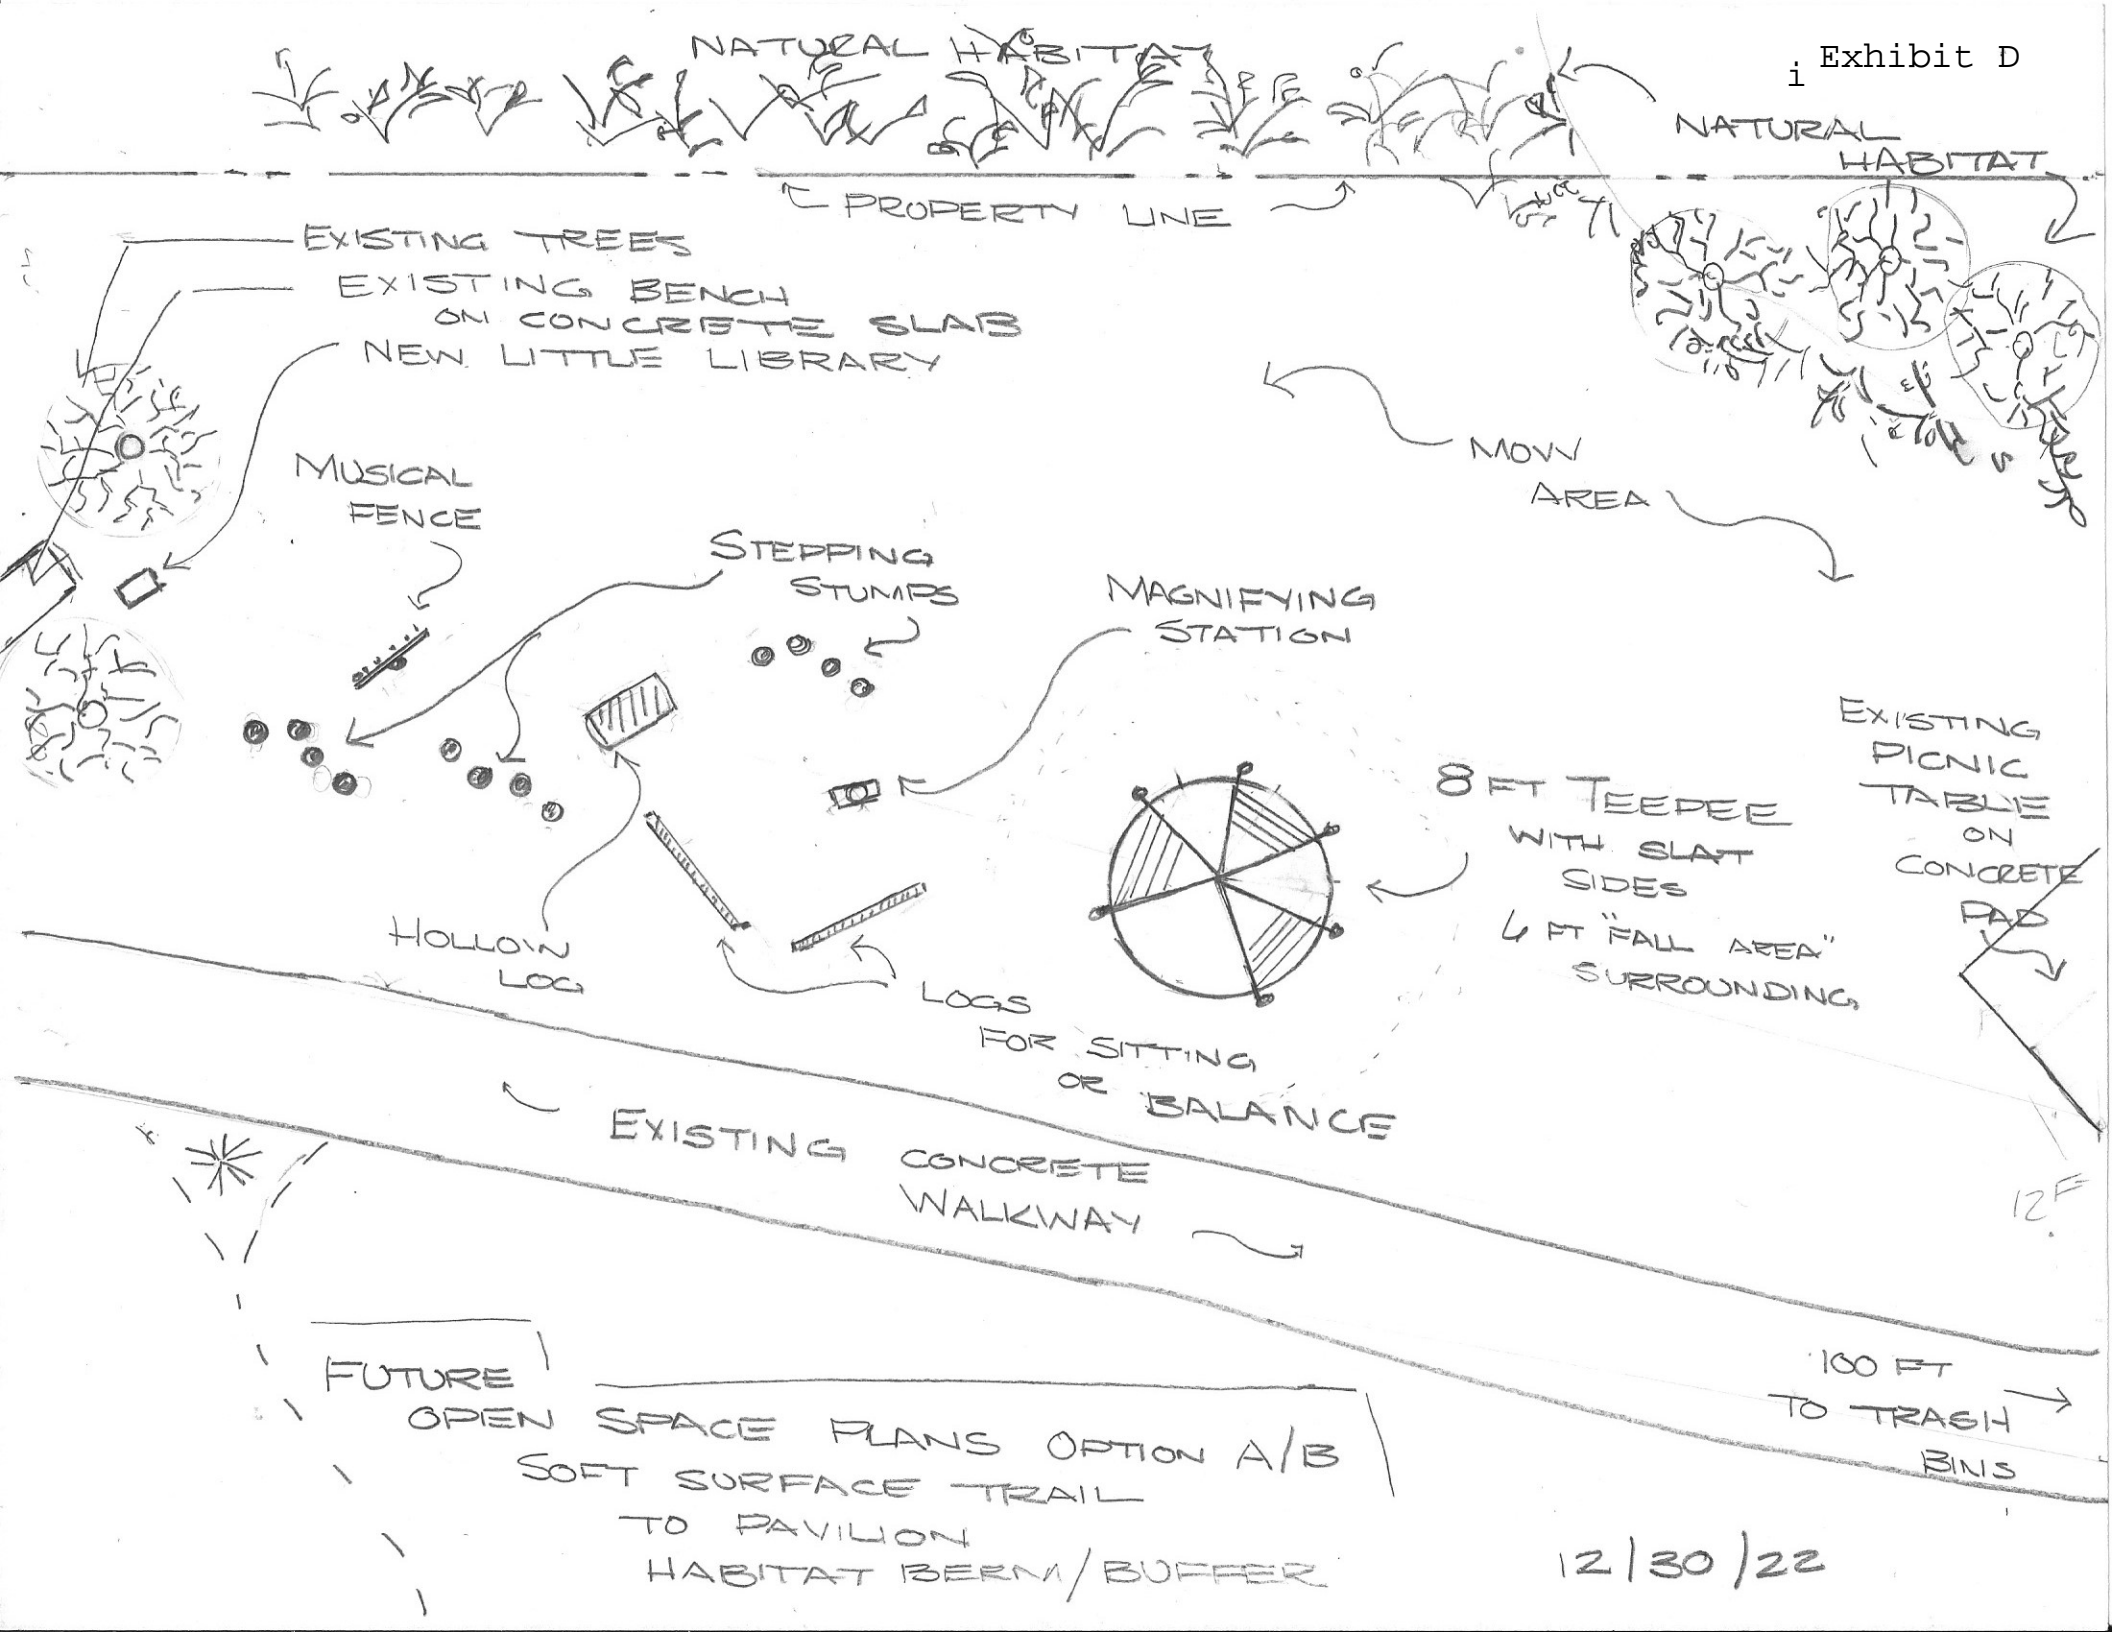 NATURAL HABITAT
i Exhibit D
NATURAL
HABITAT
PROPERTY LINE
EXISTING TREES
EXISTING BENCH
ON CONCRETE SLAB
NEW LITTLE LIBRARY
MOW
AREA
MUSICAL
FENCE
STEPPING
STUMPS
MAGNIFYING
STATION
EXISTING
PICNIC
TABLE
ON
CONCRETE
PAD
8 FT TEEPEE
WITH SLAT
SIDES
6 FT "FALL AREA"
SURROUNDING
HOLLOW
LOG
LOGS
FOR SITTING
OR
BALANCE
EXISTING CONCRETE
WALKWAY
12 F
100 FT
TO TRASH
BINS
FUTURE
OPEN SPACE PLANS OPTION A/B
SOFT SURFACE TRAIL
TO PAVILION
HABITAT BERM/BUFFER
12/30/22